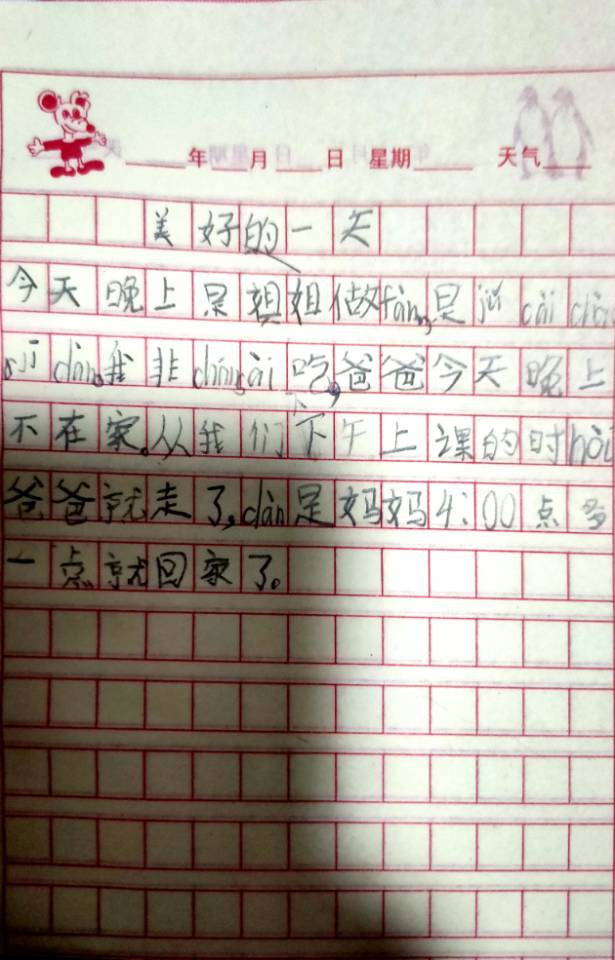 年 月 日 星期 天气
美好的一天
今天晚上是姐姐做fàn,是jiǔ cài chǎo
jī dàn,我非cháng ài吃,爸爸今天晚上
不在家。从我们下午上课的时hòi
爸爸就走了,dàn是妈妈4:00点多
一点就回家了。